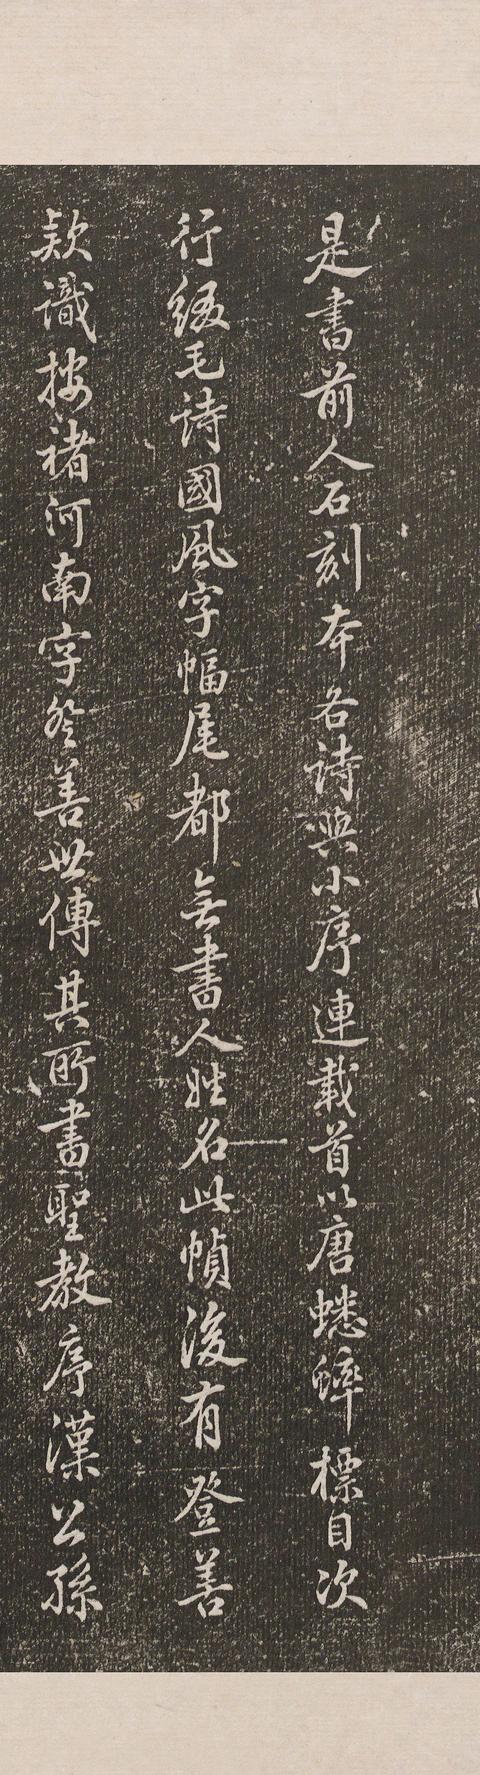 是書前人石刻本各詩與小序連載首以唐蟋蟀標目次
行綴毛詩國風字幅尾都無書人姓名此幀後有登善
款識按褚河南字登善世傳其所書聖教序漢公孫